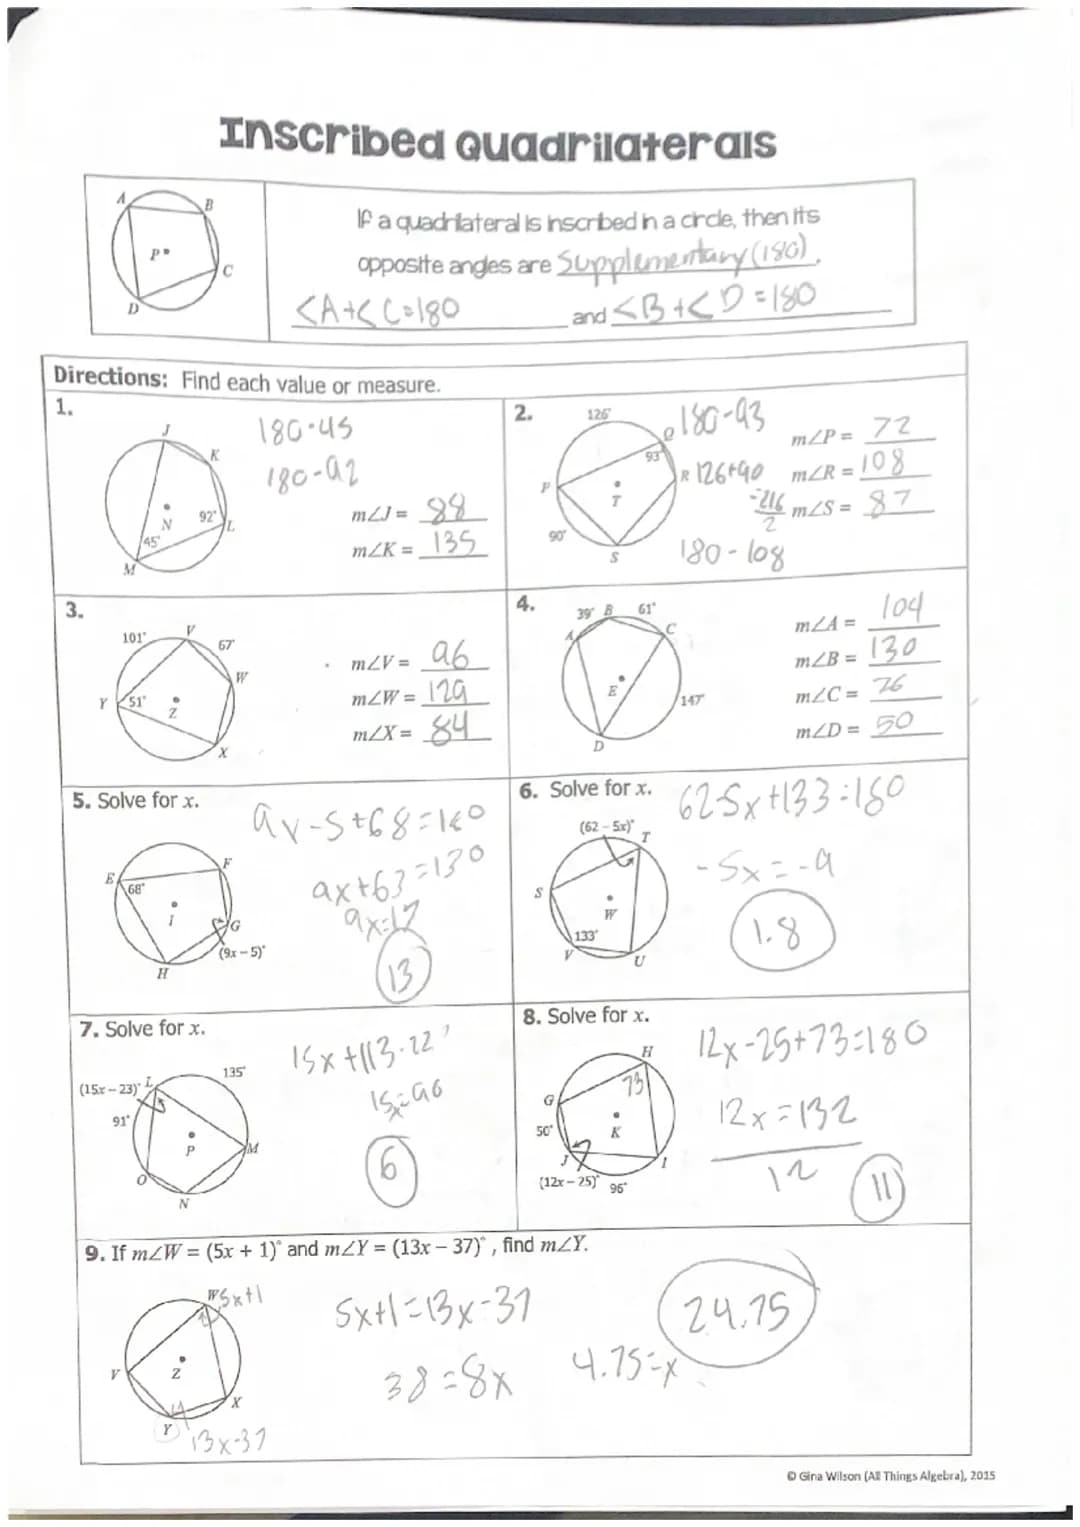 Inscribed Quadrilaterals
A
B
P
C
D
If a quadrilateral is inscribed in a circle, then its
opposite angles are Supplementary (180).
<A+<C=180 and <B+<D=180
Directions: Find each value or measure.
1.
J
K
N
92°
L
45°
M
180-45
180-92
m∠J = 88
m∠K = 135
2.
126°
Q
93°
P
R
T
90°
S
180-93
126+90
=216
2
180-108
m∠P = 72
m∠R = 108
m∠S = 87
3.
101°
V
67°
W
Y
51°
Z
X
m∠V = 96
m∠W = 129
m∠X = 84
4.
39°
B
61°
A
C
E
147°
D
m∠A = 104
m∠B = 130
m∠C = 76
m∠D = 50
5. Solve for x.
9x-5+68=180
9x+63=180
E
F
68°
I
G
(9x – 5)°
H
13
6. Solve for x.
62-5x+133=180
(62 – 5x)°
T
-5x=-9
S
W
133°
V
U
1.8
7. Solve for x.
135°
(15x – 23)°
L
91°
P
M
O
N
15x=90
6
8. Solve for x.
12x-25+73=180
H
73
G
50°
K
J
I
(12x – 25)°
96°
12x=132
12
11
9. If m∠W = (5x + 1)° and m∠Y = (13x – 37)°, find m∠Y.
W
5x+1
V
Z
X
Y
13x-37
5x+1=13x-37
38=8x
4.75=x
24.75
© Gina Wilson (All Things Algebra), 2015